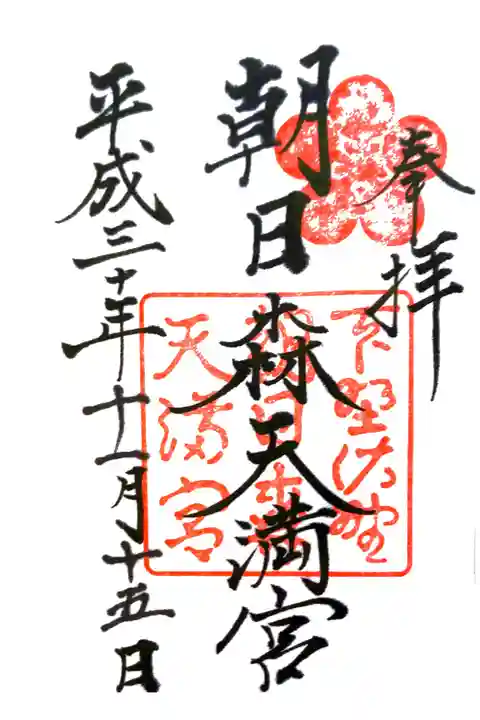 奉拝
朝日森天満宮
下野佐野
朝日森
天満宮
平成三十年十一月十五日